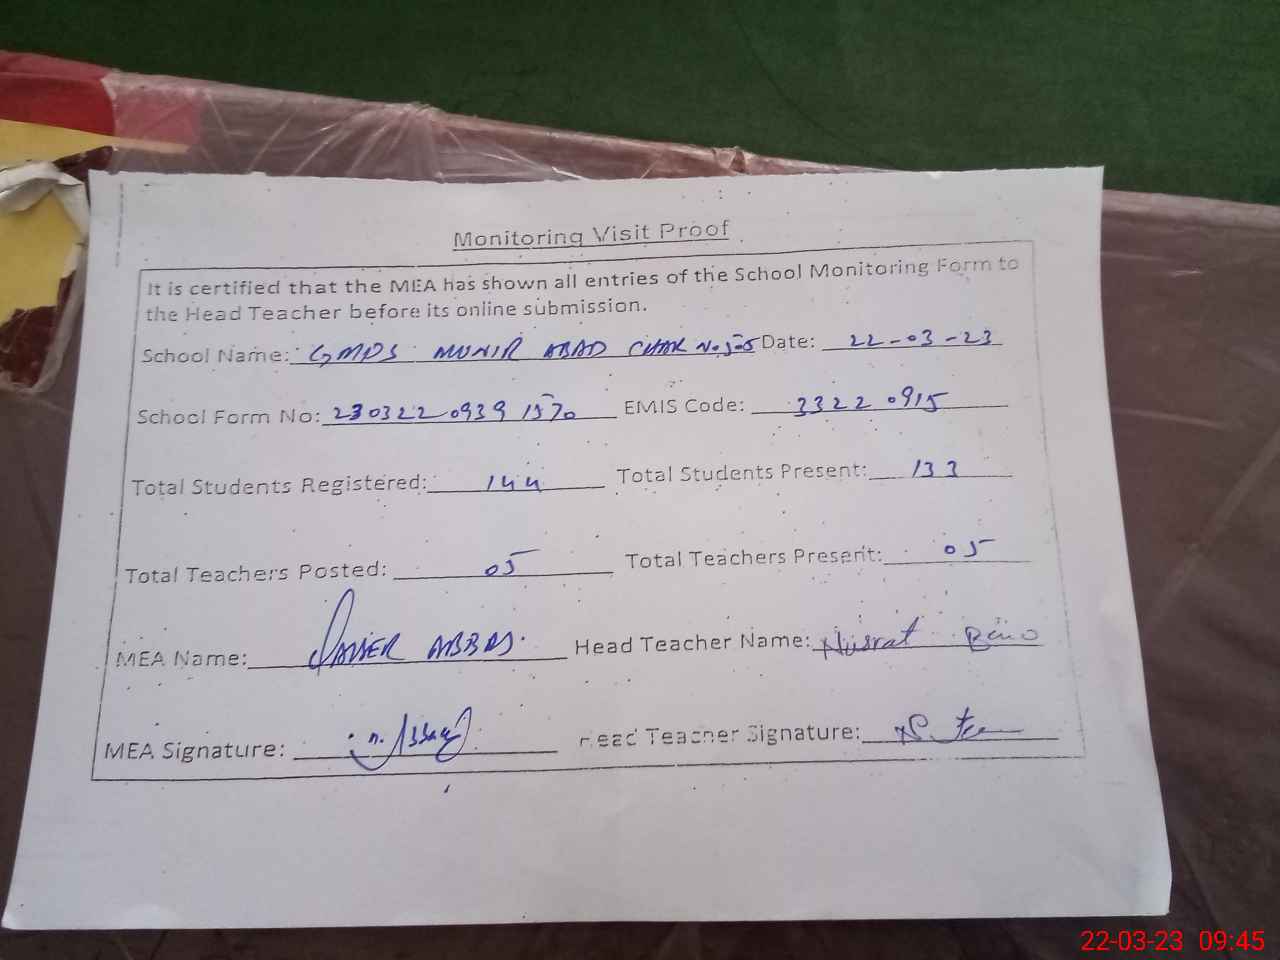 Monitoring Visit Proof
It is certified that the MEA Has shown all entries of the School Monitoring Form to
the Head Teacher before its online submission.
School Name: GMPS MUNIR ABAD CHAK No. Date: 22-03-23
School Form No: 230322 0939 1570 EMIS Code: 3322 0915
Total Students Registered: 144 Total Students Present: 133
Total Teachers Posted: 05 Total Teachers Present: 05
MEA Name: ABBAS. Head Teacher Name: Nusrat Bano
MEA Signature: Head Teacher Signature:
22-03-23 09:45